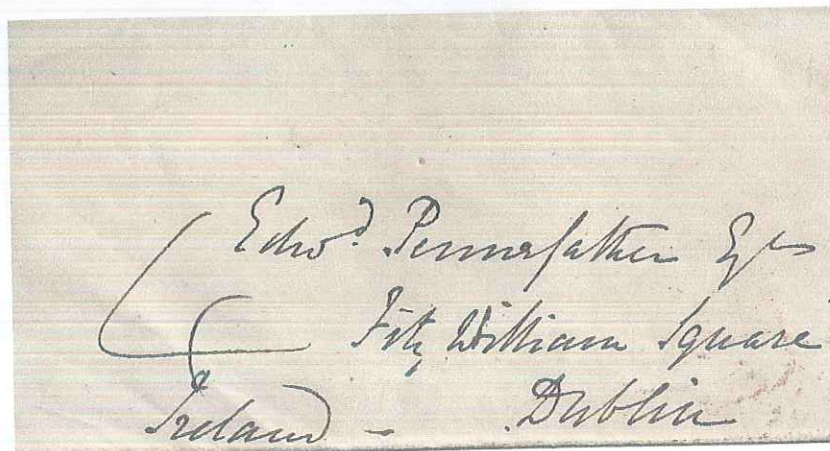 Edwd. Pennefather Esqr
Fitz William Square
Ireland - Dublin